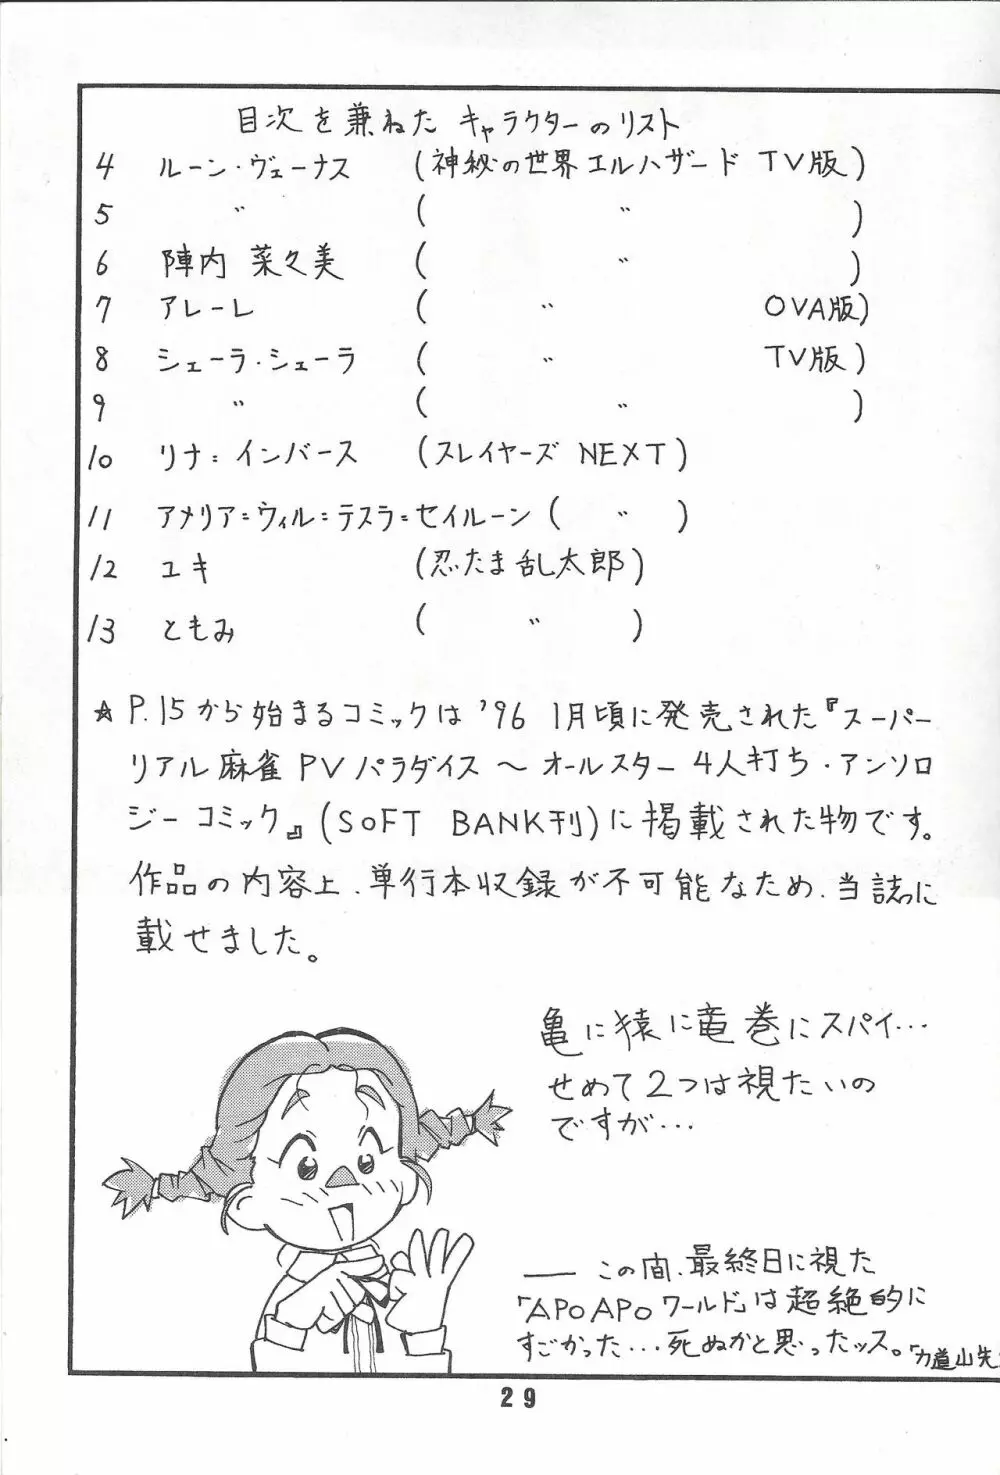 目次を兼ねた キャラクターのリスト
4 ルーン・ヴェーナス (神秘の世界エルハザード TV版)
5 〃 ( 〃 )
6 陣内 菜々美 ( 〃 )
7 アレーレ ( 〃 OVA版)
8 シェーラ・シェーラ ( 〃 TV版)
9 〃 ( 〃 )
10 リナ=インバース (スレイヤーズ NEXT)
11 アメリア=ウィル=テスラ=セイルーン ( 〃 )
12 ユキ (忍たま乱太郎)
13 ともみ ( 〃 )
☆ P.15から始まるコミックは '96 1月頃に発売された『スーパー
リアル麻雀PVパラダイス 〜オールスター4人打ち・アンソロ
ジーコミック』(SOFT BANK刊)に掲載された物です。
作品の内容上、単行本収録が不可能なため、当誌に
載せました。
亀に猿に竜巻にスパイ…
せめて2つは視たいの
ですが…
── この間、最終日に視た
「APO APO ワールド」は超絶的に
すごかった…死ぬかと思ったッス。「力道山先
29